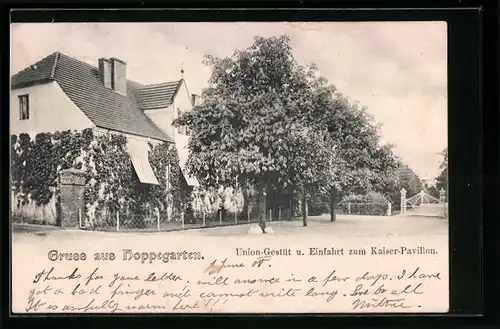 Gruss aus Hoppegarten.
Union-Gestüt u. Einfahrt zum Kaiser-Pavillon.
Thanks for your letter, will answer in a few days. I have
got a bad finger and cannot write long. Love to all
It is awfully warm here!!!